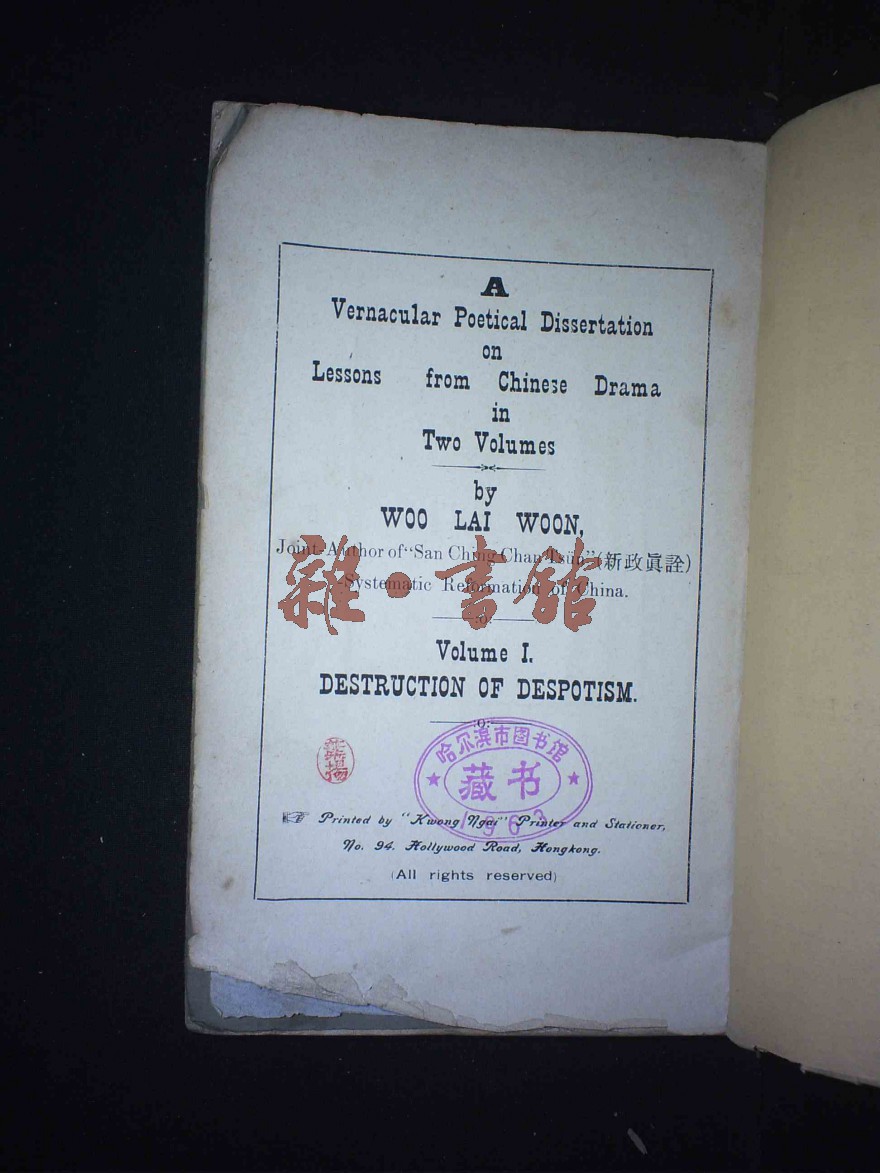 A
Vernacular Poetical Dissertation
on
Lessons from Chinese Drama
in
Two Volumes
by
WOO LAI WOON,
Joint-Author of "San Ching Chan Tsün" (新政眞詮)
-Systematic Reformation of China.
雜·書館
:o:
Volume I.
DESTRUCTION OF DESPOTISM.
:o:
哈尔滨市图书馆
★ 藏书 ★
1963
Printed by "Kwong Ngai" Printer and Stationer,
No. 94. Hollywood Road, Hongkong.
(All rights reserved)